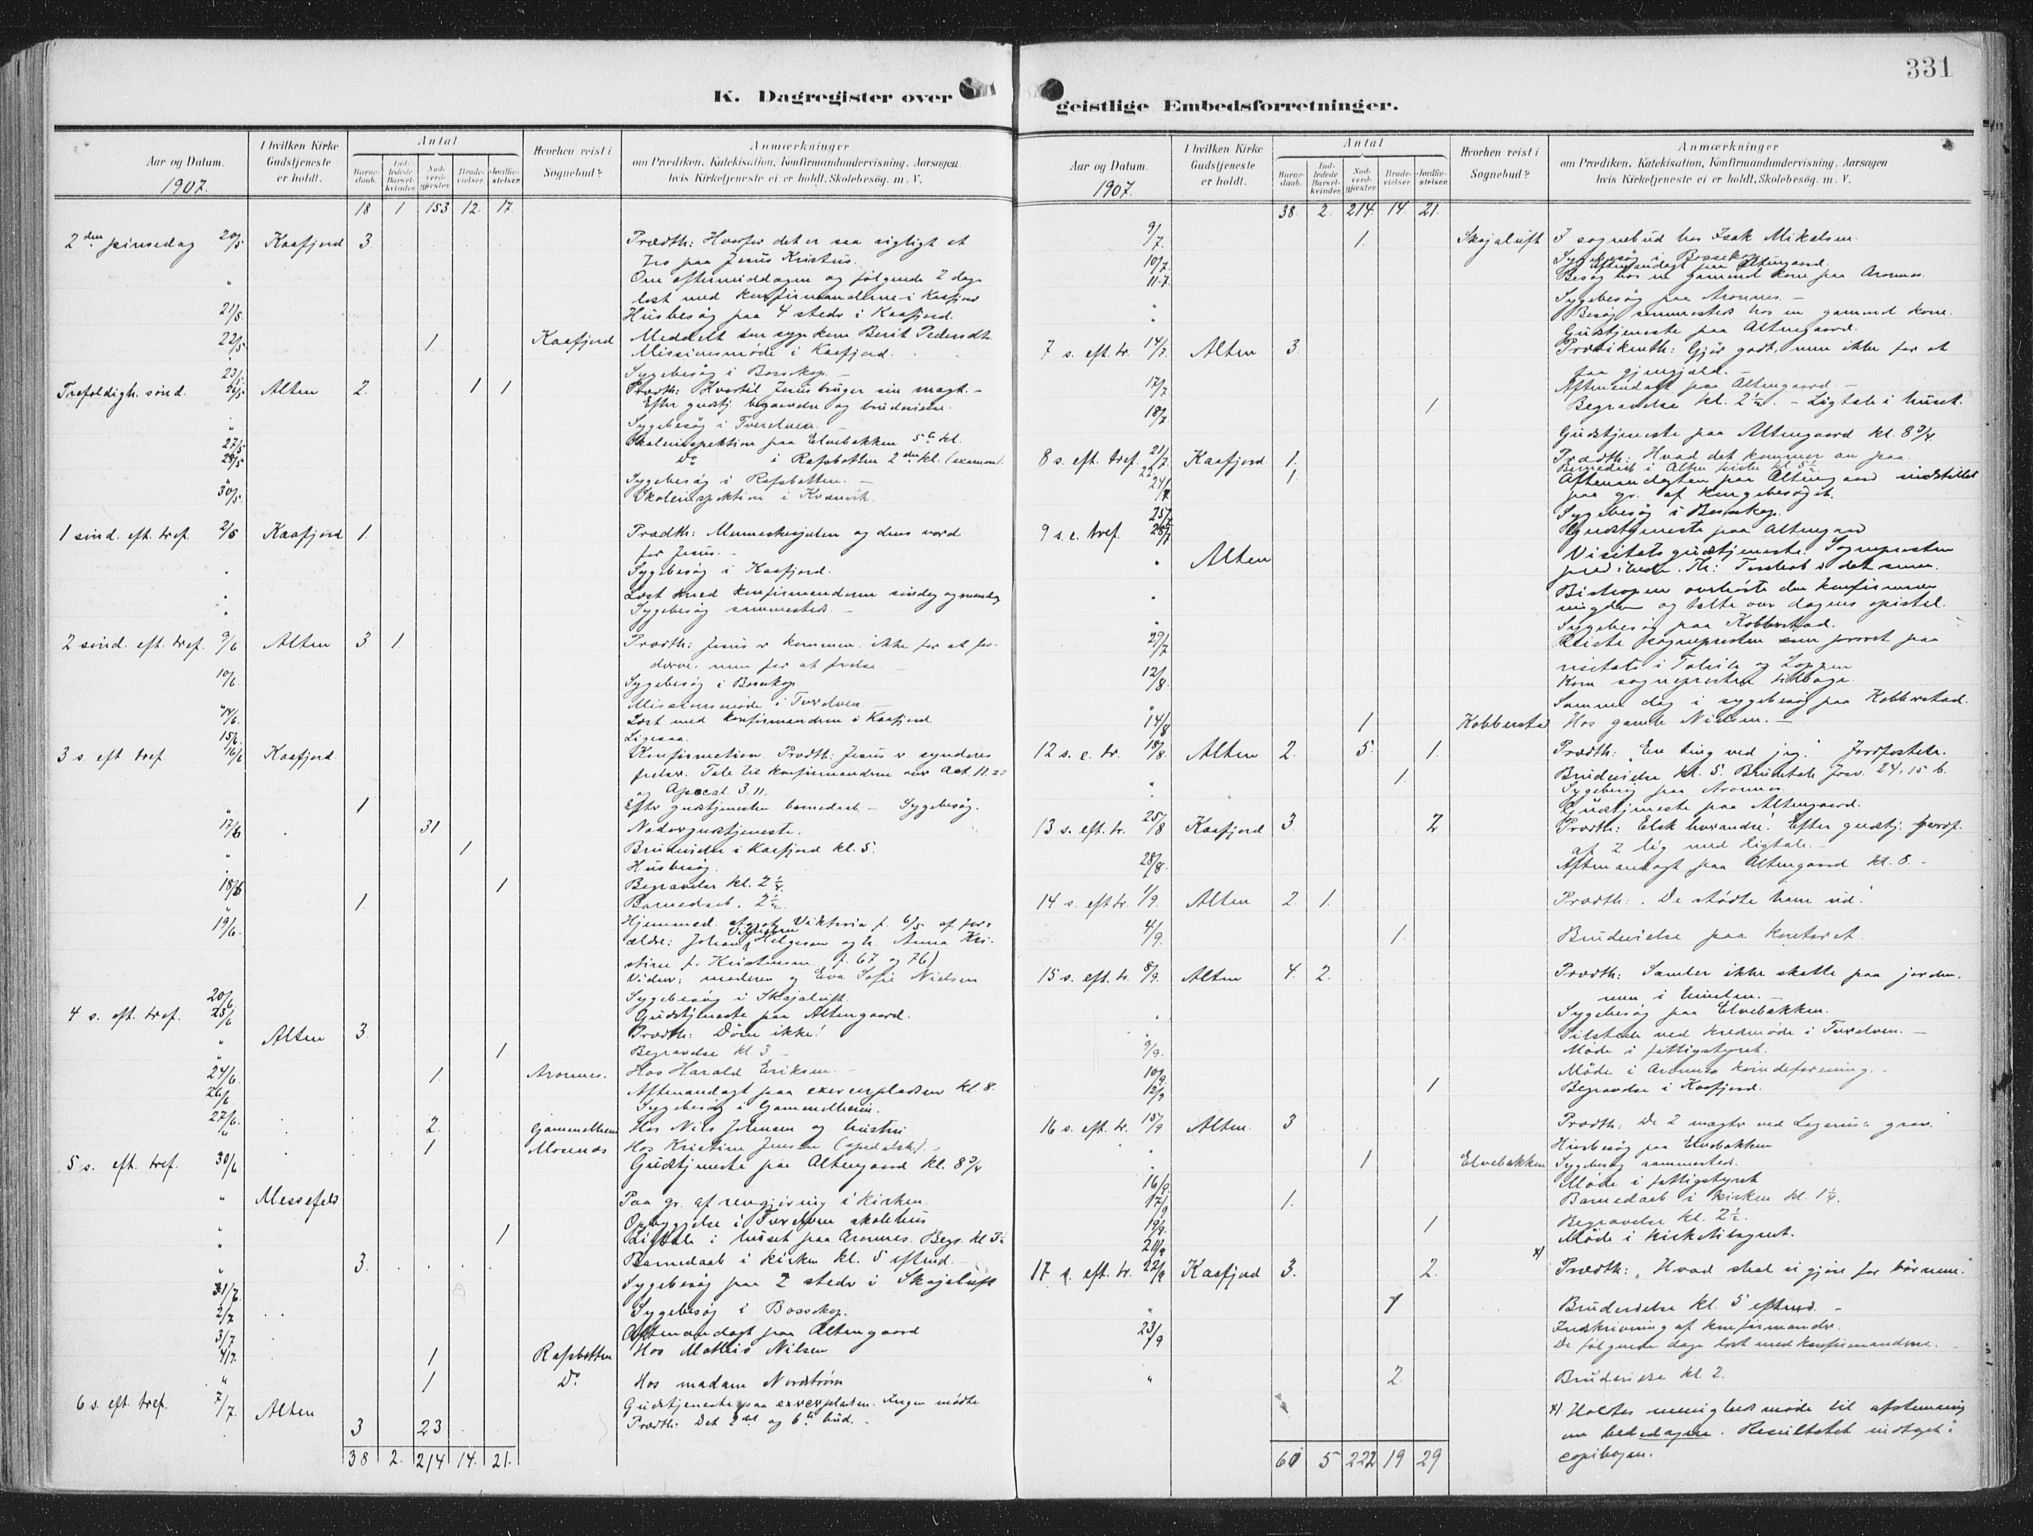 331
K. Dagregister over
geistlige Embedsforretninger.
Aar og Datum.
1907.
I hvilken Kirke Gudstjeneste er holdt.
Antal
Barnedaab.
Indledede Barselkvinder.
Nadverdgjester.
Brudevielser.
Jordfæstelser.
Hvorhen reist i Sognebud?
Anmærkninger
om Prædiken, Katekisation, Konfirmandundervisning, Aarsagen
hvis Kirketjeneste ei er holdt, Skolebesøg, m. V.
18 1 153 12. 17.
2den pinsedag 20/5 Kaafjord 3 Prædth: Hvorfor det er saa vigtigt at
tro paa Jesus Kristus.
" Om eftermiddagen og følgende 2 dage
læst med konfirmanderne i Kaafjord
21/5 Husbesøg paa 4 steder i Kaafjord.
22/5 1 Kaafjord Meddelt den syge kone Berit Pedersdtr.
" Missionsmøde i Kaafjord.
23/5 Sygebesøg i Bossekop.
Trefoldigh. sønd. 26/5 Alten 2. 1 1 Prædth: Hvortil Jesus bruger sin magt.
Efter gudstj. begravelse og brudevielse.
" Sygebesøg i Tverelven.
27/5 Skoleinspektion paa Elvebakken 5te kl.
28/5 Do i Rafsbotten 2den kl. (examen).
" Sygebesøg i Rafsbotten.
30/5 Skoleinspektion i Kvænvik.
1 sønd. eft. tref. 2/6 Kaafjord 1. Prædth: Menneskesjælen og dens værd
for Jesus.
" Sygebesøg i Kaafjord.
" Læst med konfirmanderne søndag og mandag
" Sygebesøg sammesteds
2 sønd. eft. tref. 9/6 Alten 3 1 Prædth: Jesus er kommen ikke for at for-
derve, men for at frelse
10/6 Sygebesøg i Bossekop
" Missionsmøde i Tverelven
14/6 Læst med konfirmandern i Kaafjord.
15/6 Ligesaa.
3 s. eft tref 16/6 Kaafjord Konfirmation Prædth: Jesus er synderes
frelser. Tale til konfirmanderne over Act. 11.23
og Apocal 3.11.
" 1 Efter gudstjenesten barnedaab – Sygebesøg.
17/6 31 Nadvergudstjeneste.
" 1 Brudevielse i Kaafjord kl. 5.
" Husbesøg.
18/6 1 Begravelse kl. 2 1/4.
" 1 Barnedaab. 2 1/2
19/6. Hjemmed. Viktoria f. 6/5 af for-
ældre: Johan Vilhelm Helgesen og h. Anna Kri-
stine f. Kristensen f. 67 og 76)
Vidner: moderen og Eva Sofie Nielsen
20/6. Sygebesøg i Skajaluft.
4 s. eft. tref. 23/6 Gudstjeneste paa Altengaard.
" Alten 3. Prædth: Døm ikke!
" 1 Begravelse kl. 3
24/6. 1. Aronnes. Hos Harald Eriksen.
26/6. Aftenandagt paa exercerpladsen kl. 8.
" Sygebesøg i Gammelheim.
27/6. 2. Gammelheim Hos Nils Johnsen og hustru
" 1 Mornæs Hos Kristine Jensen (spedalsk).
5 s. eft. tref. 30/6 Gudstjeneste paa Altengaard kl. 8 3/4
" Messefald Paa gr. af rengjøring i kirken.
" Opbyggelse i Tverelven skolehus
" 1 Ligtale i huset paa Aronnes. Begr. kl. 3 1/2
" 3. Barnedaab i kirken kl. 5 eftmd.
1/7. Sygebesøg paa 2 steder i Skajaluft
2/7 Sygebesøg i Bossekop.
3/7 Aftenandagt paa Altengaard
4/7. 1 Rafsbotten Hos Mathis Nilsen
" 1 Do Hos madam Nordstrøm
6 s. eft. tref. 7/7 Alten 3 23 Gudstjeneste paa exercerpladsen. Ingen mødte
Prædth: Det 2det og 6te bud.
38 2. 214 14. 21.
Aar og Datum.
1907.
I hvilken Kirke Gudstjeneste er holdt.
Antal
Barnedaab.
Indledede Barselkvinder.
Nadverdgjester.
Brudevielser.
Jordfæstelser.
Hvorhen reist i Sognebud?
Anmærkninger
om Prædiken, Katekisation, Konfirmandundervisning, Aarsagen
hvis Kirketjeneste ei er holdt, Skolebesøg, m. V.
38. 2. 214. 14. 21.
9/7. 1. Skajaluft I sognebud hos Isak Mikelsen.
10/7 Sygebesøg i Bossekop.
Aftenandagt paa Altengaard.
11.7. Besøg hos en gammel kone paa Aronnes.
Sygebesøg paa Aronnes.
" Besøg sammesteds hos en gammel kone.
Gudstjeneste paa Altengaard.
7 s. eft tr. 14/7 Alten 3. Prædikenth: Gjør godt, men ikke for at
faa gjengjæld.
17/7 Aftenandagt paa Altengaard.
18/7 1 Begravelse kl. 2 1/2. – Ligtale i huset.
Gudstjeneste paa Altengaard kl. 8 3/4
8 s. eft. tref. 21/7 Kaafjord 1. Prædth: Hvad det kommer an paa.
1. Barnedaab i Alten kirke kl. 5 1/2
24/7 Aftenandagten paa Altengaard indstillet
paa gr. af kongebesøget.
25/7 Sygebesøg i Bossekop.
9 s. e. tref. 28/7 Gudstjeneste paa Altengaard
" Alten Visitatsgudstjeneste. Sognepresten
prædikede. Th: Troskab i det smaa.
" Biskopen overhørte den konfirmerede
ungdom og talte over dagens epistel.
" Sygebesøg paa Kobberstad.
29/7 Reiste sognepresten som provst paa
visitats i Talvik og Loppen
12/8. Kom sognepresten tilbage.
" Samme dag i sygebesøg paa Kobberstad.
14/8 1 Kobberstad Hos gamle Nielsen.
12 s. e. tr. 18/8 Alten 2. 5. 1. Prædth: "En ting ved jeg." Jordfæstelse.
" 1. Brudevielse kl. 5. Brudetale Josv. 24.15 b.
" Sygebesøg paa Aronnes.
Gudstjeneste paa Altengaard.
13 s. eft. tr. 25/8 Kaafjord 3. 2 Prædth: Elsk hverandre! Efter gudstj. jordf.
af 2 lig med ligtale.
28/8. Aftenandagt paa Altengaard kl. 8
14 s. eft tr. 1/9. Alten 2. 1. Prædth: De stødte ham ud!
4/9. 1. Brudevielse paa kontoret.
15 s. eft tr. 8/9. Alten 4. 2. Prædth: Samler ikke skatte paa jorden,
men i himlen.
" Sygebesøg paa Elvebakken.
" Tilstede ved møde i Tverelven.
9/9. Møde i fattigstyret.
10/9. Møde i Aronnes kvindeforening.
12/9 1 Begravelse i Kaafjord.
16 s. eft. tr. 15/9 Alten. 3 Prædth: De 2 magter ved Lazarus's grav.
Husbesøg paa Elvebakken
" 1 Elvebakken Sygebesøg sammesteds.
16/9. Møde i fattigstyret
17/9 1. Barnedaab i kirken kl. 1 1/4.
19/9. 1 Begravelse kl. 2 1/2.
20/9 Møde i kirketilsynet.
17 s. eft. tr. 22/9 Kaafjord 3. 2. x) Prædth: "Hvad skal vi gjøre for børnene."
" 1 Brudevielse kl. 5 eftmd.
23/9 Indskrivning af konfirmander.
De følgende dage læst med konfirmanderne.
" 2. Brudevielse kl 2.
x) Holdtes menighedsmøde til afstemning
om bededagene. Resultatet indtaget i
copibogen.
60 5 222 19 29